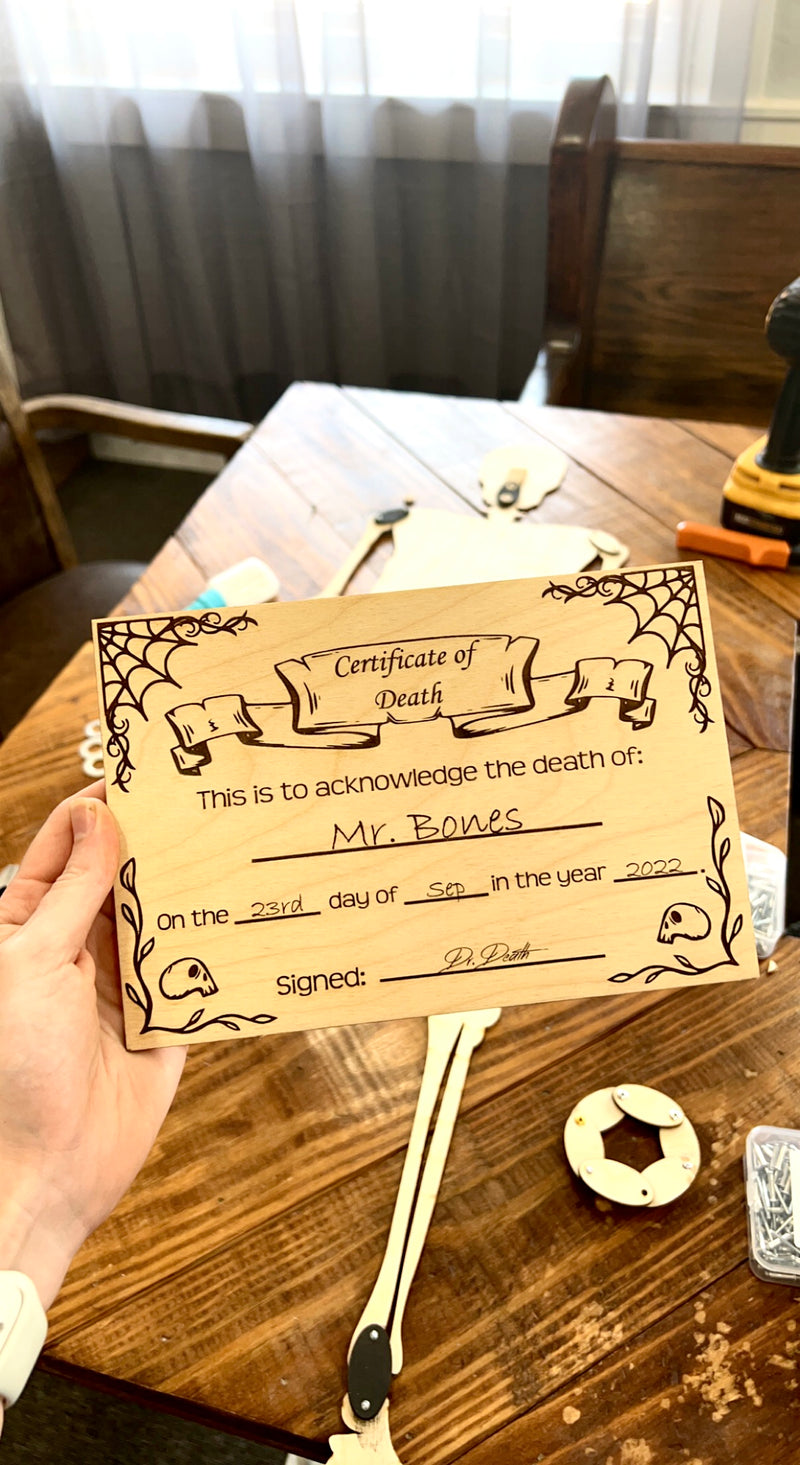 Certificate of
Death
This is to acknowledge the death of:
Mr. Bones
On the 23rd day of Sep in the year 2022.
Signed: Dr. Death